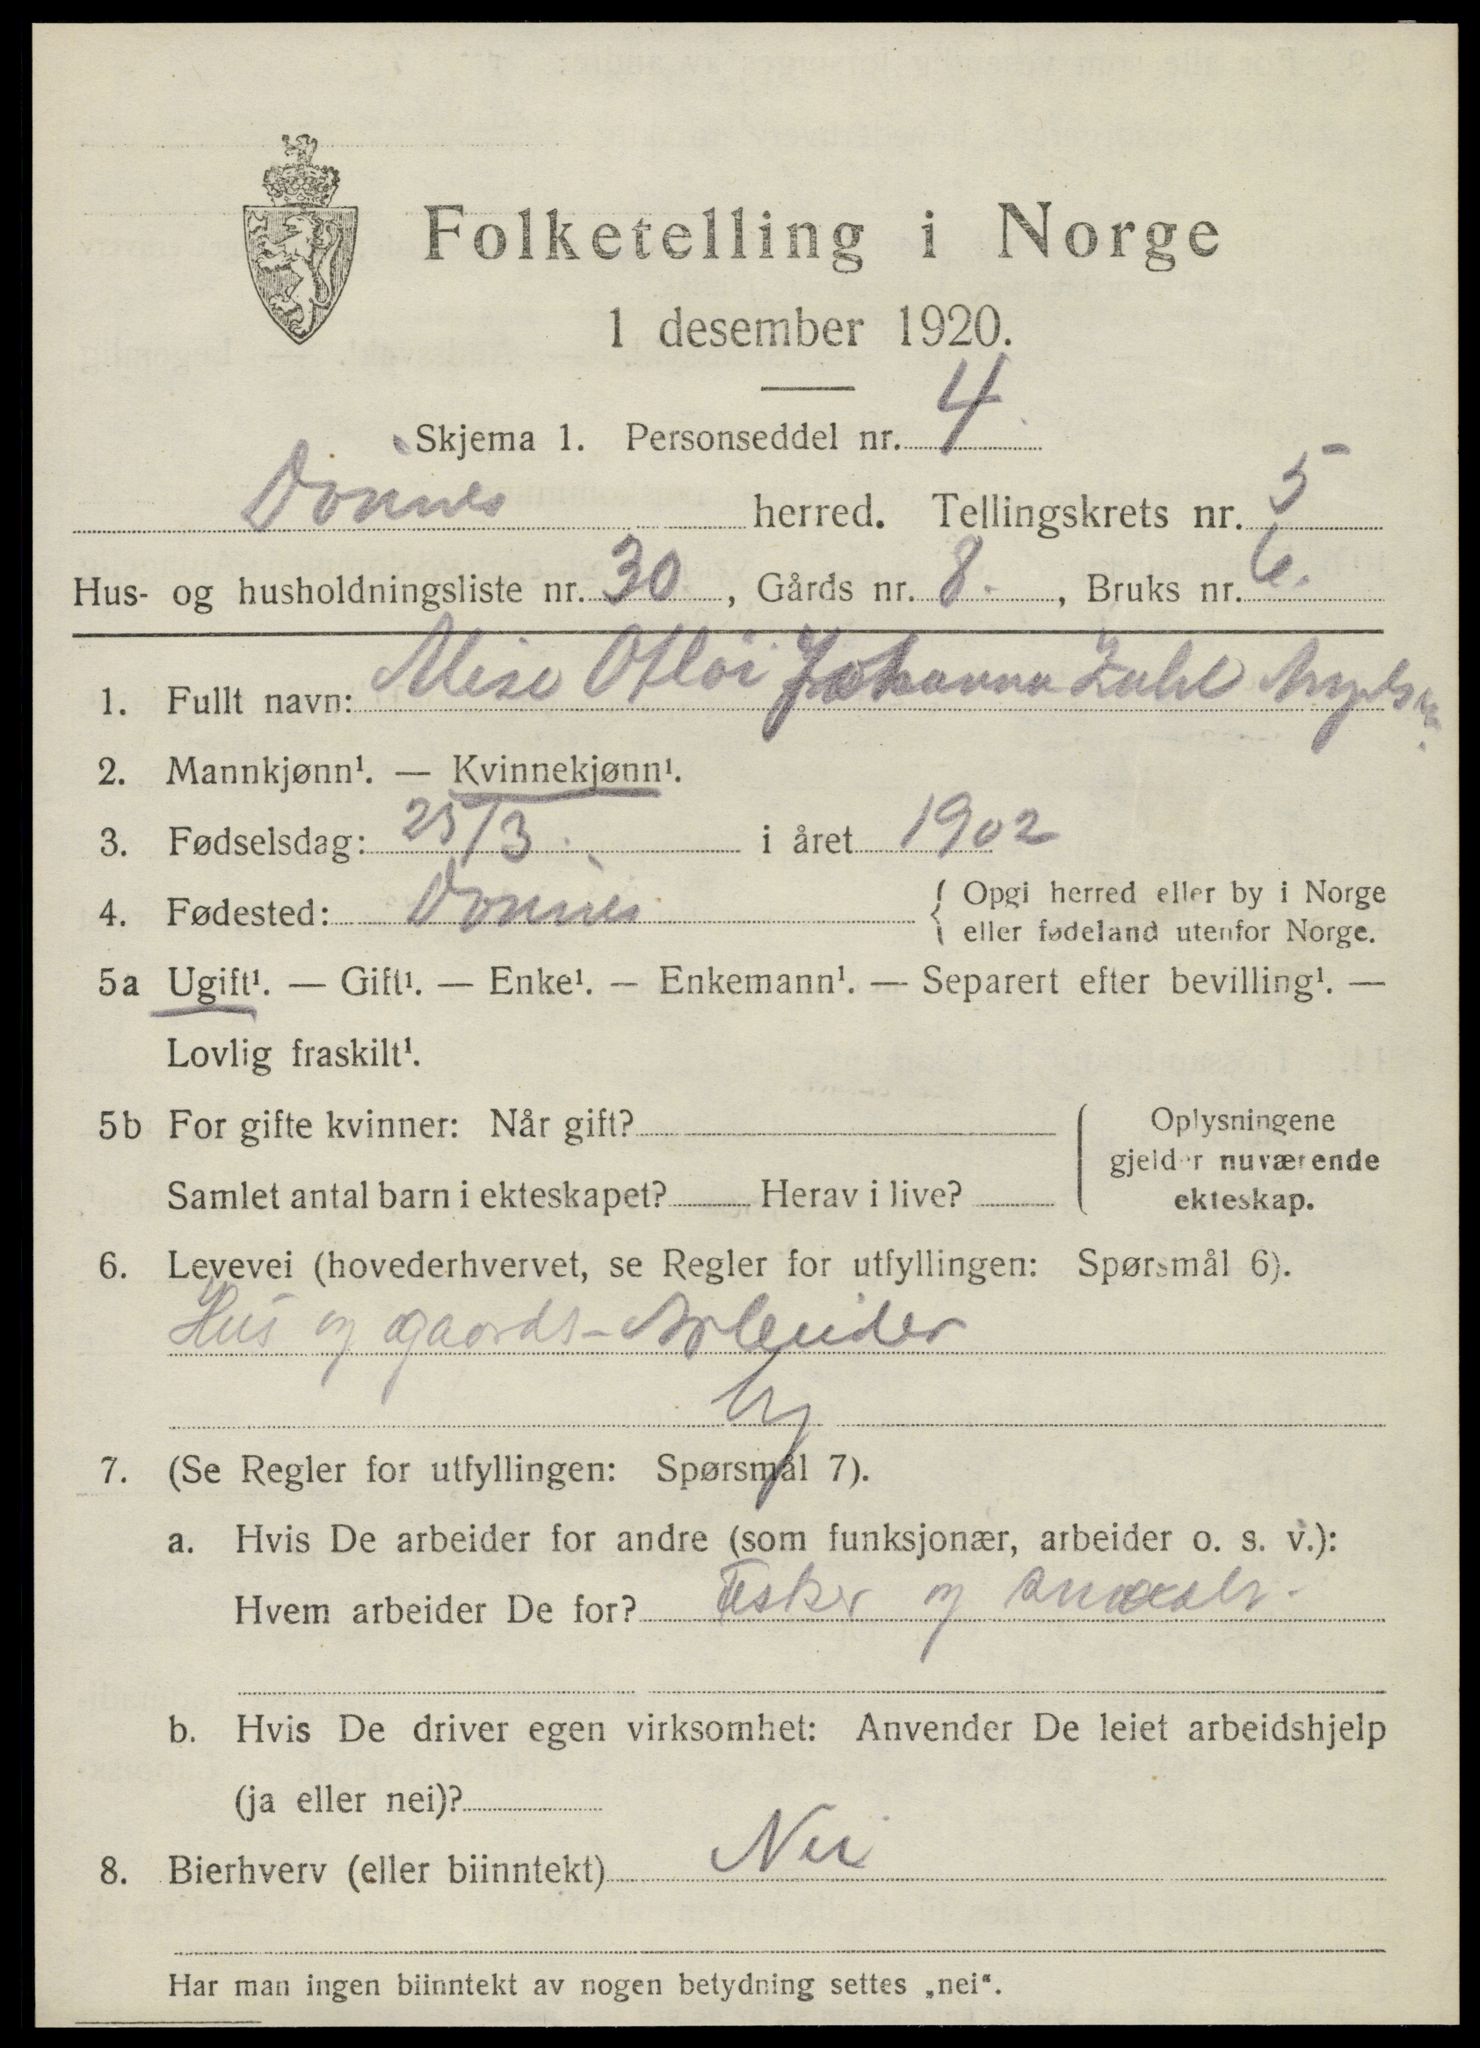 Folketelling i Norge
1 desember 1920.
Skjema 1. Personseddel nr. 4.
Dønnes herred. Tellingskrets nr. 5
Hus- og husholdningsliste nr. 30, Gårds nr. 8., Bruks nr. 6.
1. Fullt navn: Alise Otlöi Johanna Zahl
2. Mannkjønn¹. — Kvinnekjønn¹.
3. Fødselsdag: 25/3. i året 1902
4. Fødested: Dønnes { Opgi herred eller by i Norge
eller fødeland utenfor Norge.
5a Ugift¹. — Gift¹. — Enke¹. — Enkemann¹. — Separert efter bevilling¹. —
Lovlig fraskilt¹.
5b For gifte kvinner: Når gift?
Samlet antal barn i ekteskapet? Herav i live?
Oplysningene
gjelder nuværende
ekteskap.
6. Levevei (hovederhvervet, se Regler for utfyllingen: Spørsmål 6).
Hus og gaards-Arbeider
7. (Se Regler for utfyllingen: Spørsmål 7).
a. Hvis De arbeider for andre (som funksjonær, arbeider o. s. v.):
Hvem arbeider De for? og
b. Hvis De driver egen virksomhet: Anvender De leiet arbeidshjelp
(ja eller nei)?
8. Bierhverv (eller biinntekt) Nei
Har man ingen biinntekt av nogen betydning settes „nei“.